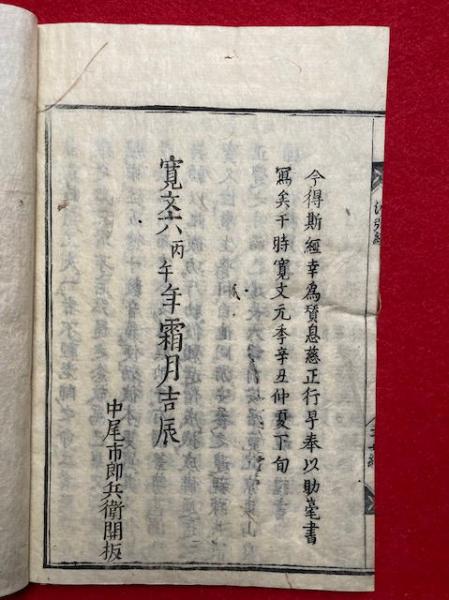 今得斯經幸為賢息慈正行早奉以助毫書
寫矣于時寛文元季辛丑仲夏下旬
寛文六丙午年霜月吉辰
中尾市郎兵衛開板